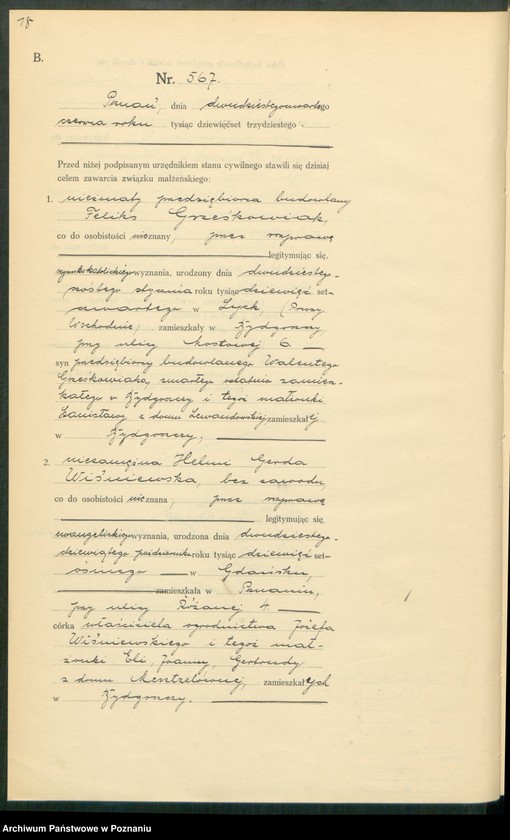 18
B.
Nr. 567.
Poznań, dnia dwudziestegoczwartego
czerwca roku tysiąc dziewięćset trzydziestego
Przed niżej podpisanym urzędnikiem stanu cywilnego stawili się dzisiaj
celem zawarcia związku małżeńskiego:
1. nieżonaty przedsiębiorca budowlany
Feliks Grześkowiak,
co do osobistości nieznany, przez rozprawę
legitymując się,
rzymskokatolickiego wyznania, urodzony dnia dwudziestego-
szóstego stycznia roku tysiąc dziewięć set-
czwartego w Lyck, (Prusy
Wschodnie) zamieszkały w Bydgoszczy,
przy ulicy Mostowej 6
syn przedsiębiorcy budowlanego Walentego
Grześkowiaka, zmarłego ostatnio zamiesz-
kałego w Bydgoszczy i tegoż małżonki
Stanisławy z domu Lewandowskiej zamieszkałej
w Bydgoszczy,
2. niezamężna Helmi Gerda
Wiśniewska, bez zawodu,
co do osobistości nieznana, przez rozprawę
legitymując się,
ewangelickiego wyznania, urodzona dnia dwudziestego-
dziewiątego października roku tysiąc dziewięć set-
ósmego w Gdańsku,
zamieszkała w Poznaniu,
przy ulicy Różanej 4
córka właściciela ogrodnictwa Józefa
Wiśniewskiego i tegoż mał-
żonki Eli, Joanny, Gertrudy
z domu zamieszkałych
w Bydgoszczy.
Archiwum Państwowe w Poznaniu